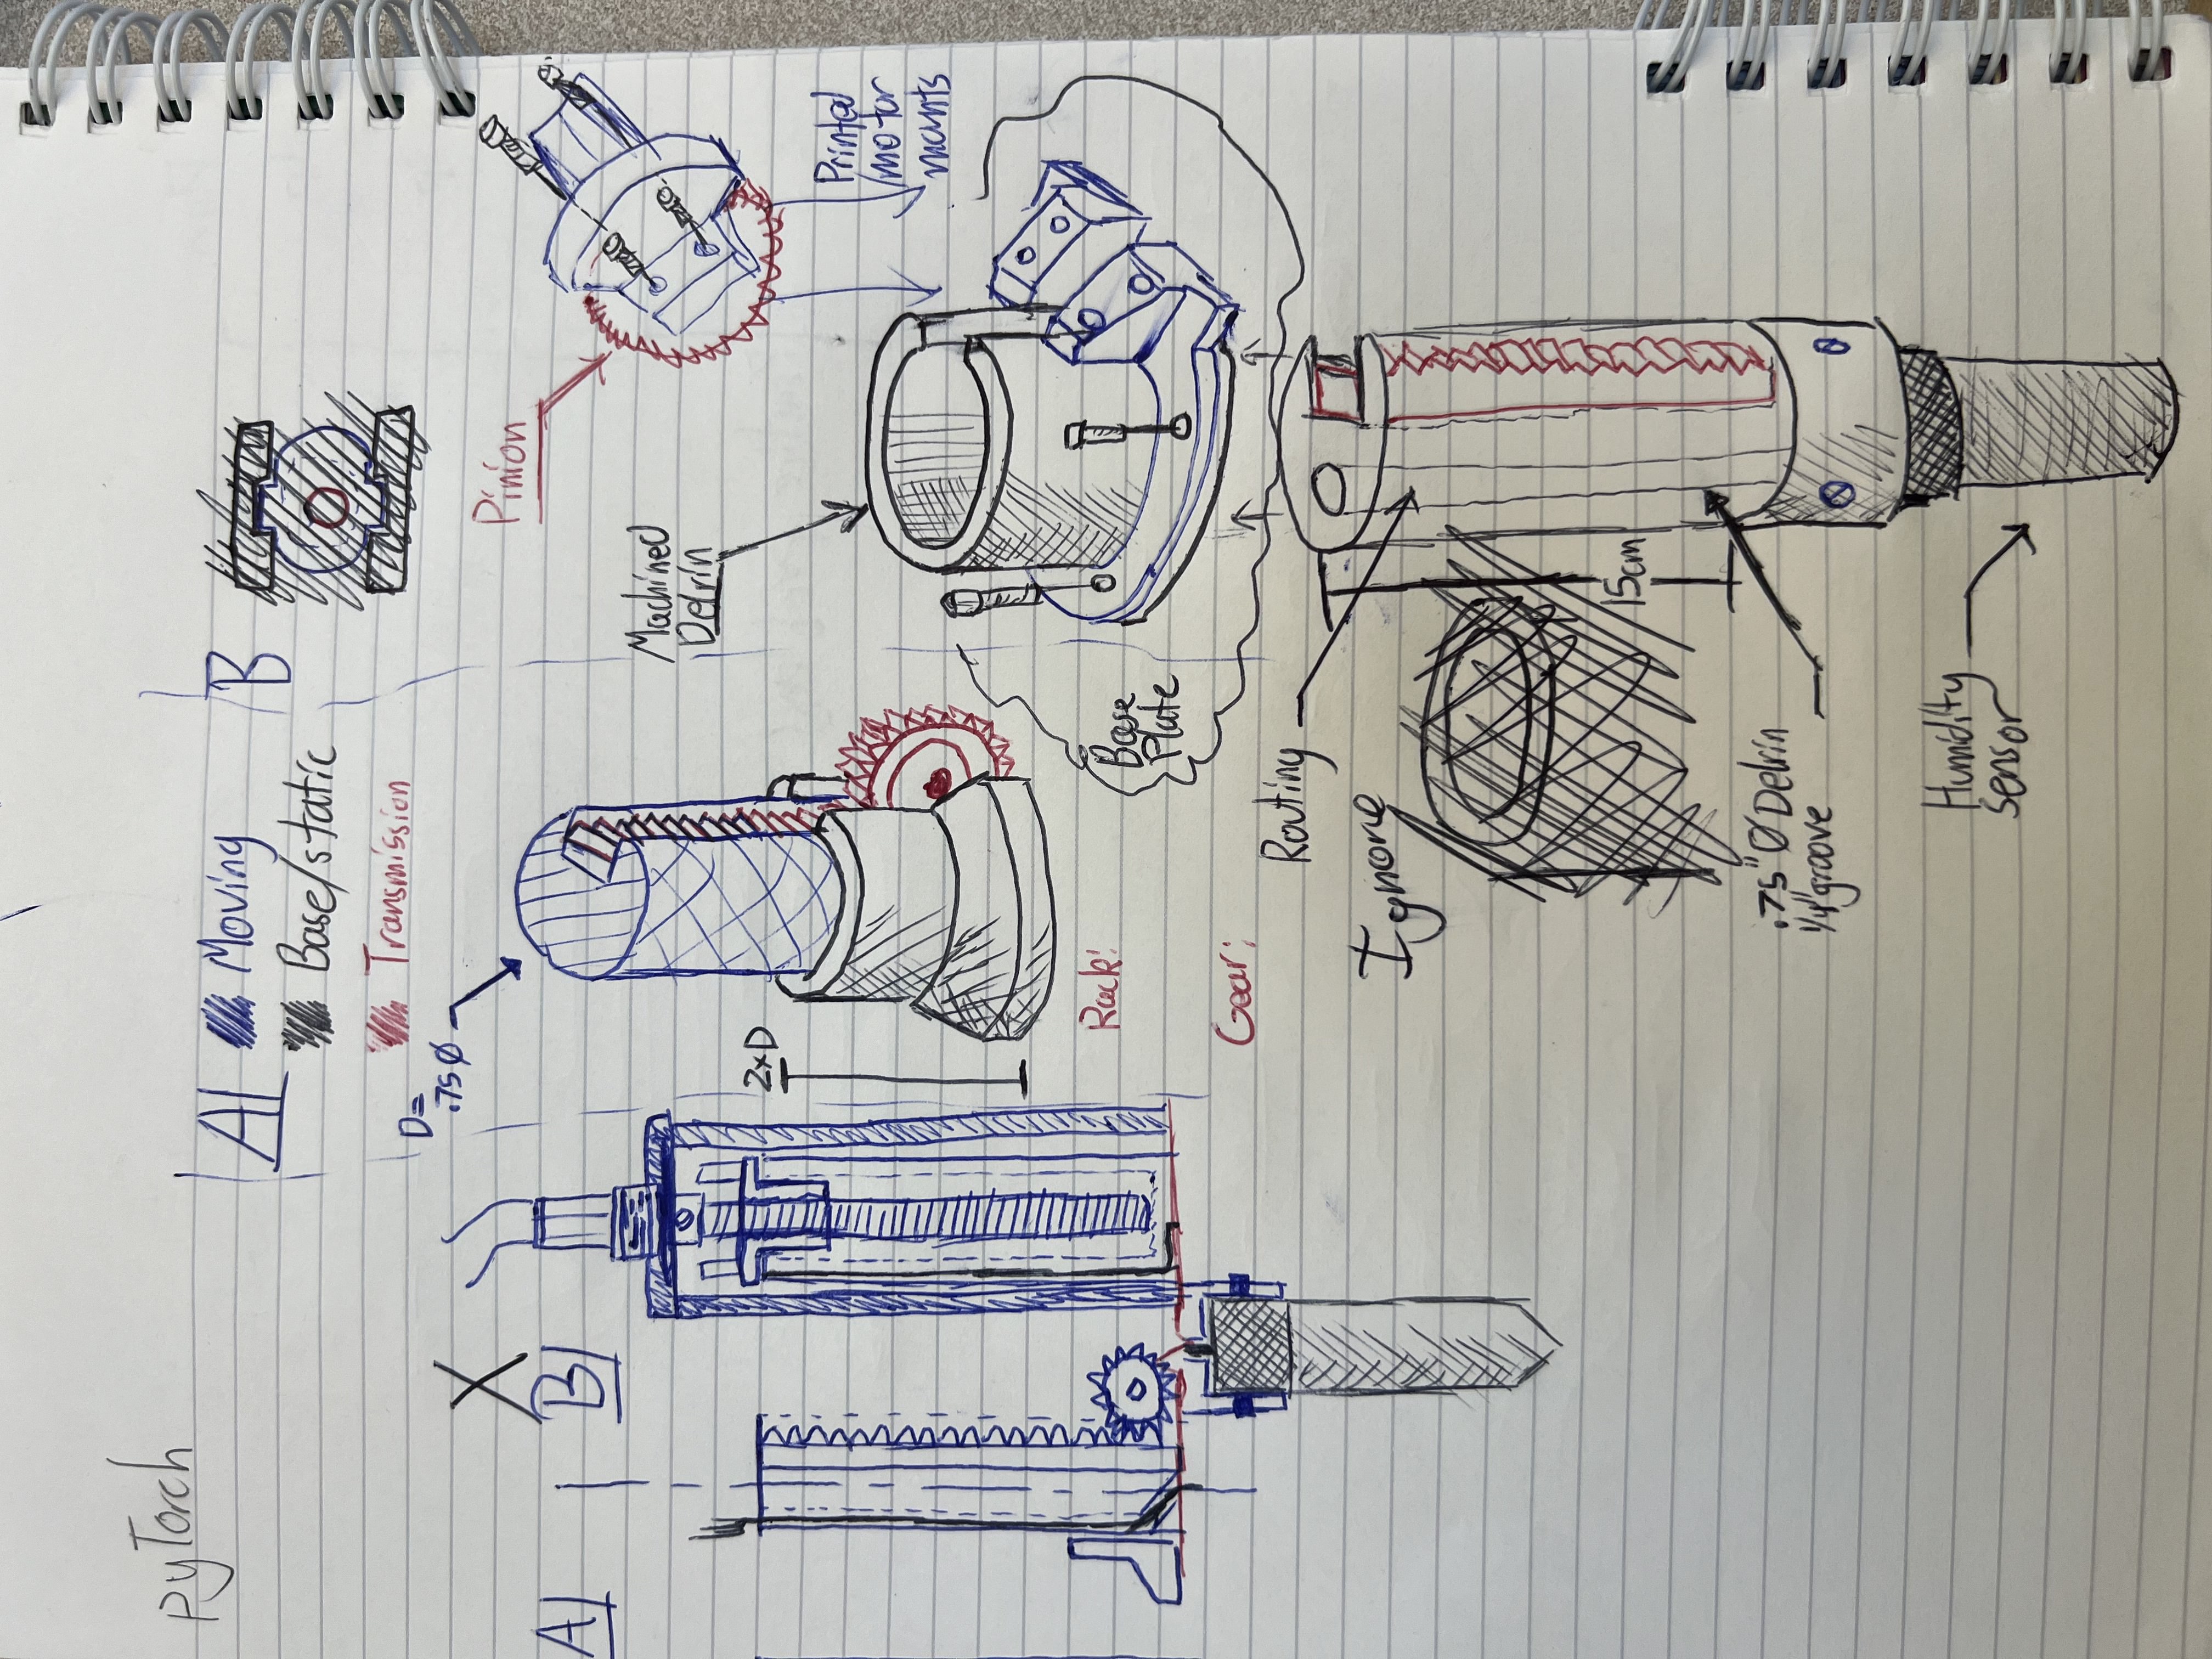 pyTorch
A
Moving
Base/static
Transmission
B
D=
.75 Ø
X
A
B
2xD
Pinion
Machined
Delrin
Printed
motor
mounts
Rack:
Gear:
Base
Plate
Routing
Ignore
15cm
.75" Ø Delrin
1/4" groove
Humidity
Sensor